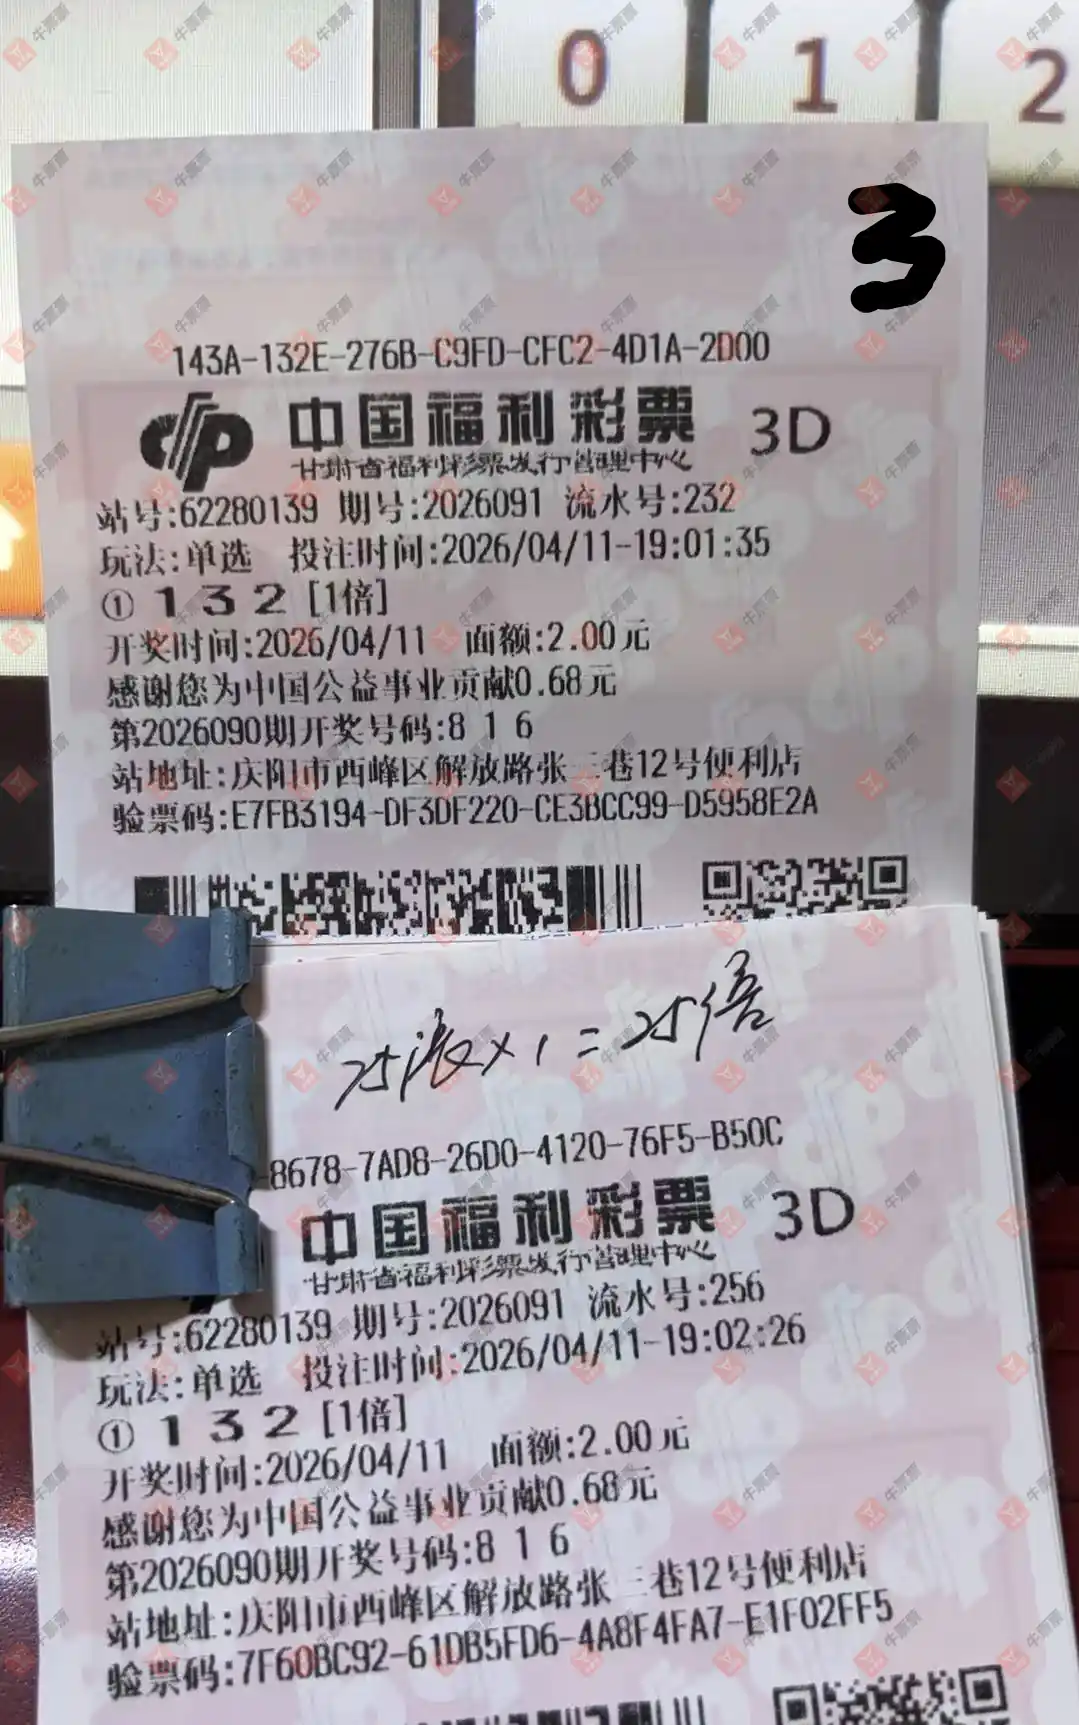 0 1 2
3
143A-132E-276B-C9FD-CFC2-4D1A-2D00
中国福利彩票 3D
甘肃省福利彩票发行管理中心
站号:62280139 期号:2026091 流水号:232
玩法:单选 投注时间:2026/04/11-19:01:35
① 1 3 2 [1倍]
开奖时间:2026/04/11 面额:2.00元
感谢您为中国公益事业贡献0.68元
第2026090期开奖号码:8 1 6
站地址:庆阳市西峰区解放路张三巷12号便利店
验票码:E7FB3194-DF3DF220-CE3BCC99-D5958E2A
25张×1=25倍
-8678-7AD8-26D0-4120-76F5-B50C
中国福利彩票 3D
甘肃省福利彩票发行管理中心
站号:62280139 期号:2026091 流水号:256
玩法:单选 投注时间:2026/04/11-19:02:26
① 1 3 2 [1倍]
开奖时间:2026/04/11 面额:2.00元
感谢您为中国公益事业贡献0.68元
第2026090期开奖号码:8 1 6
站地址:庆阳市西峰区解放路张三巷12号便利店
验票码:7F60BC92-61DB5FD6-4A8F4FA7-E1F02FF5
牛票票